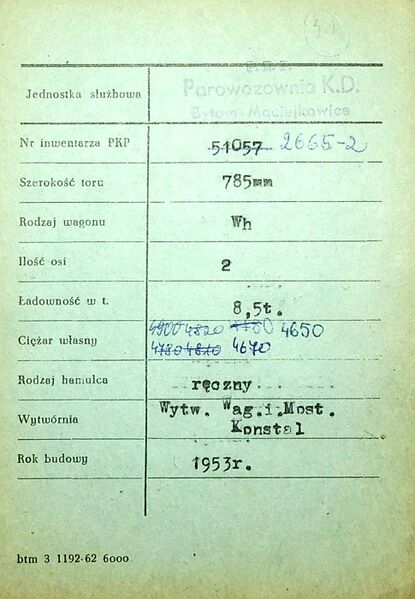 P.K.P.
Jednostka służbowa Parowozownia K.D.
Bytom-Maciejkowice
Nr inwentarza PKP 51057 2665-2
Szerokość toru 785mm
Rodzaj wagonu Wh
Ilość osi 2
Ładowność w t. 8,5t.
4900 4820 4650
Ciężar własny 4780 4810 4670
Rodzaj hamulca ręczny
Wytwórnia Wytw. Wag.i.Most.
Konstal
Rok budowy 1953r.
btm 3 1192-62 6000